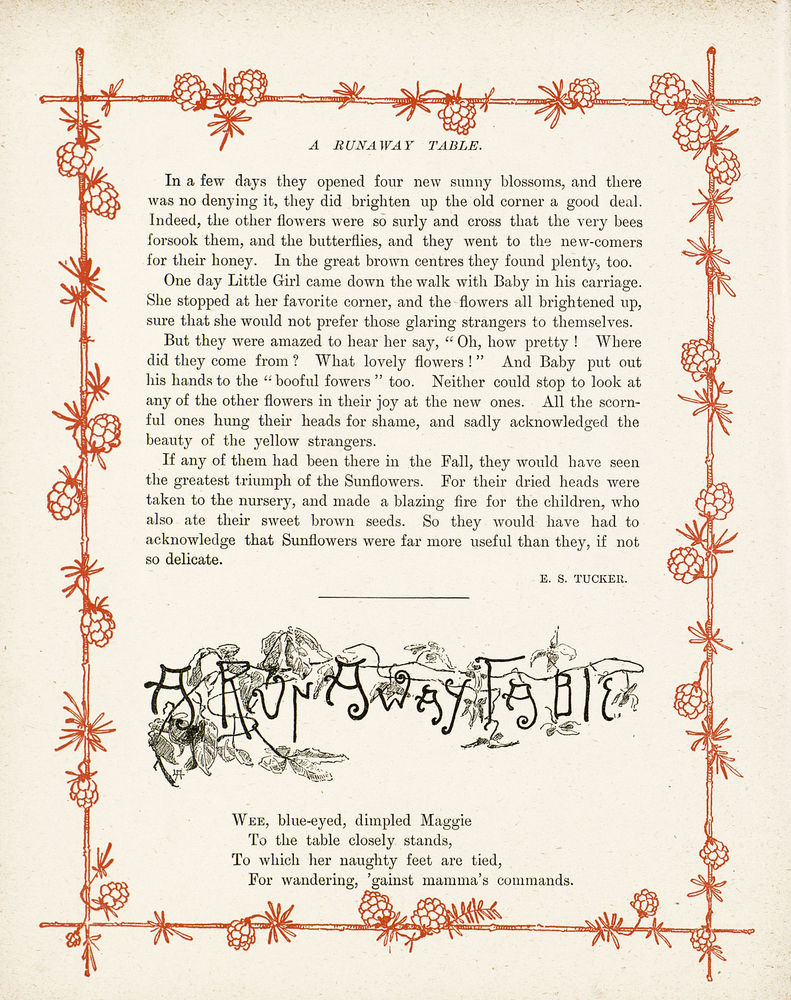 A RUNAWAY TABLE.
In a few days they opened four new sunny blossoms, and there
was no denying it, they did brighten up the old corner a good deal.
Indeed, the other flowers were so surly and cross that the very bees
forsook them, and the butterflies, and they went to the new-comers
for their honey. In the great brown centres they found plenty, too.
One day Little Girl came down the walk with Baby in his carriage.
She stopped at her favorite corner, and the flowers all brightened up,
sure that she would not prefer those glaring strangers to themselves.
But they were amazed to hear her say, “Oh, how pretty! Where
did they come from? What lovely flowers!” And Baby put out
his hands to the “booful fowers” too. Neither could stop to look at
any of the other flowers in their joy at the new ones. All the scorn-
ful ones hung their heads for shame, and sadly acknowledged the
beauty of the yellow strangers.
If any of them had been there in the Fall, they would have seen
the greatest triumph of the Sunflowers. For their dried heads were
taken to the nursery, and made a blazing fire for the children, who
also ate their sweet brown seeds. So they would have had to
acknowledge that Sunflowers were far more useful than they, if not
so delicate.
E. S. TUCKER.
A RUN AWAY TABLE.
WEE, blue-eyed, dimpled Maggie
To the table closely stands,
To which her naughty feet are tied,
For wandering, ’gainst mamma’s commands.